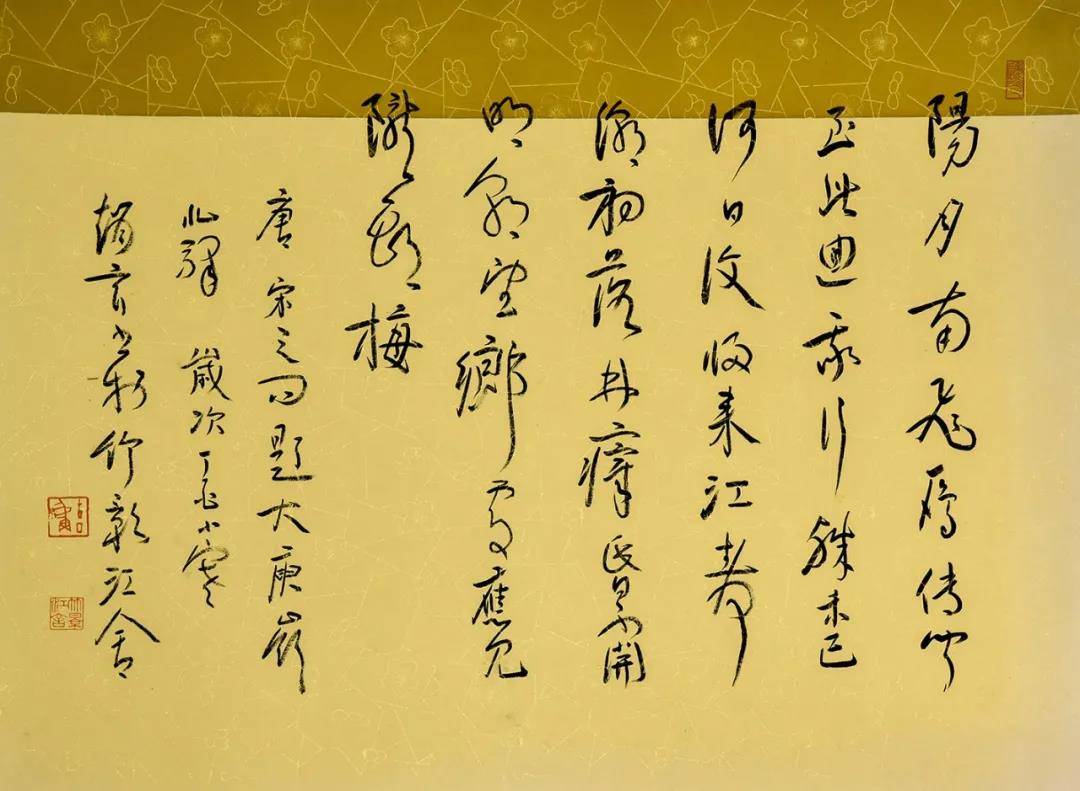 陽月南飛雁傳聞
至此迴我行殊未已
何日復歸来江静
潮初落林瘴昏不開
明朝望鄉處應見
隴頭梅
唐宋之问題大庾嶺
北驛 歲次丁小寒
書於竹影江舍